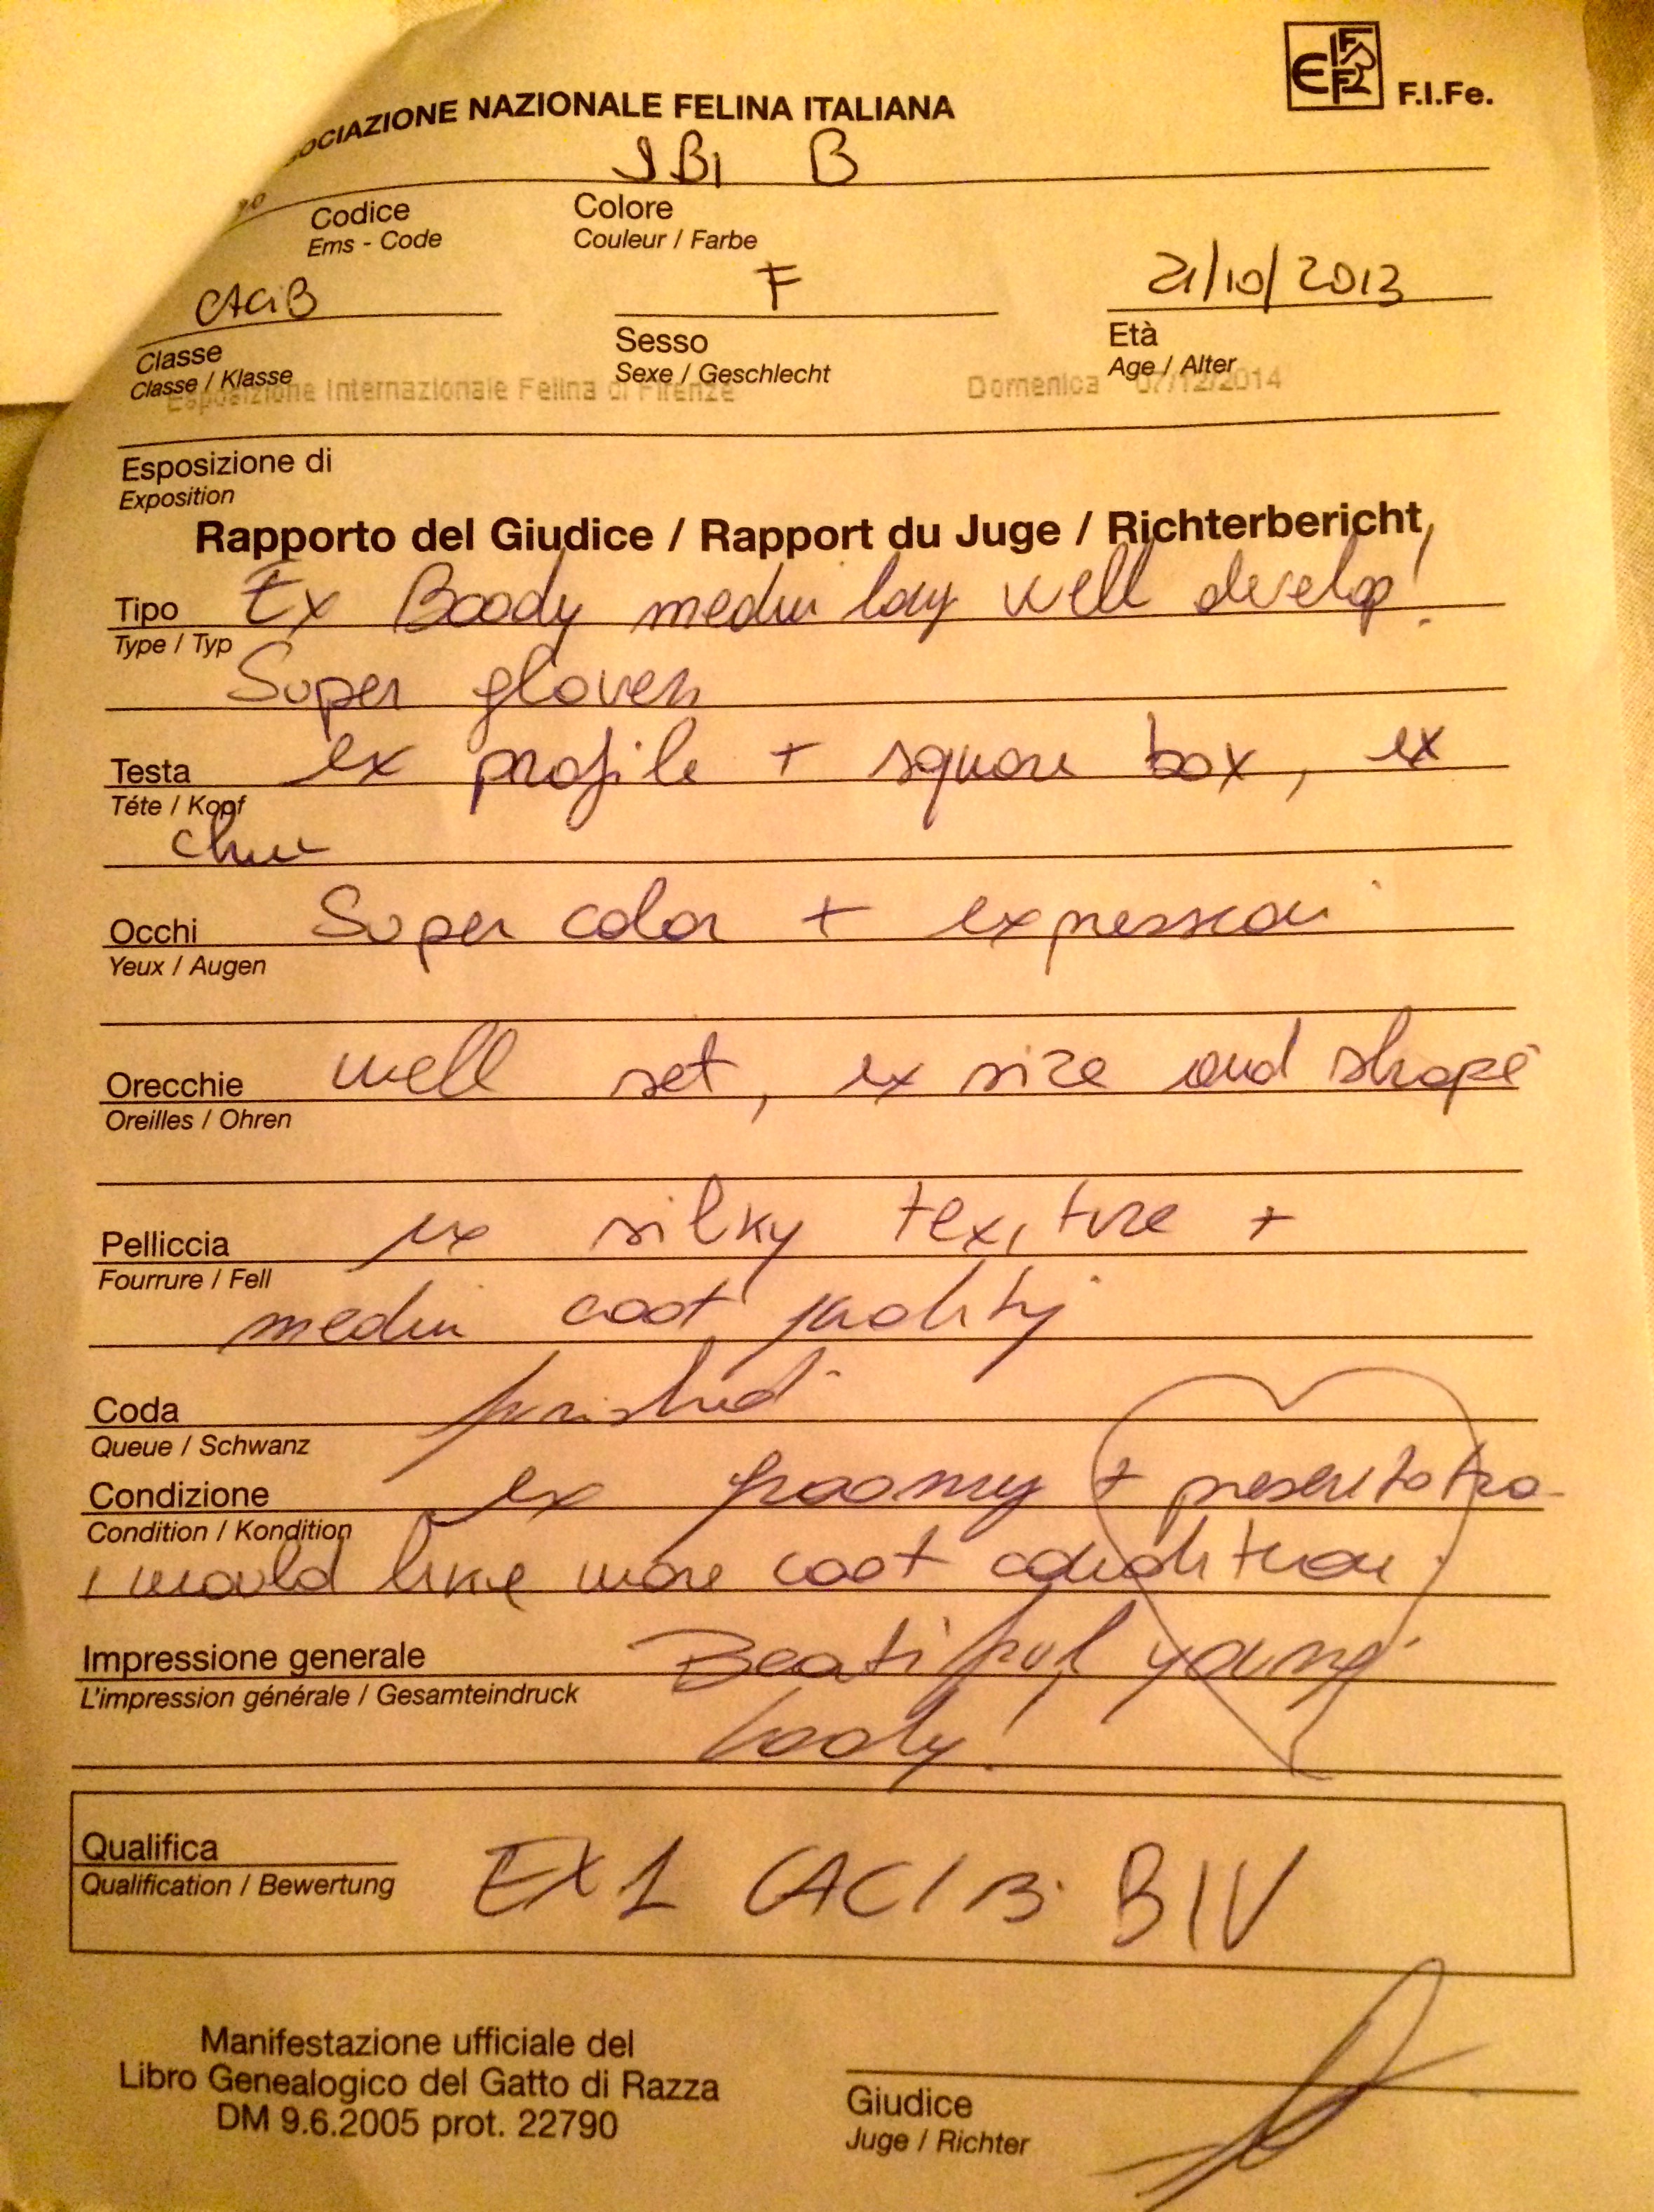 F.I.Fe.
OCIAZIONE NAZIONALE FELINA ITALIANA
SBI B
Codice
Ems - Code
Colore
Couleur / Farbe
CACIB
F
21/10/2013
Classe
Classe / Klasse
Sesso
Sexe / Geschlecht
Età
Age / Alter
Esposizione Internazionale Felina di Firenze
Domenica 07/12/2014
Esposizione di
Exposition
Rapporto del Giudice / Rapport du Juge / Richterbericht
Tipo Ex Boody well develop!
Type / Typ
Super
Testa ex profile + square box, ex
Téte / Kopf
Occhi Super color + expression
Yeux / Augen
Orecchie well set, ex size and shape
Oreilles / Ohren
Pelliccia ex silky texture +
Fourrure / Fell
coat
Coda
Queue / Schwanz
Condizione ex +
Condition / Kondition
I would like more coat condition.
Impressione generale Beatiful young
L'impression générale / Gesamteindruck
body!
Qualifica
Qualification / Bewertung
EX1 CACIB BIV
Manifestazione ufficiale del
Libro Genealogico del Gatto di Razza
DM 9.6.2005 prot. 22790
Giudice
Juge / Richter